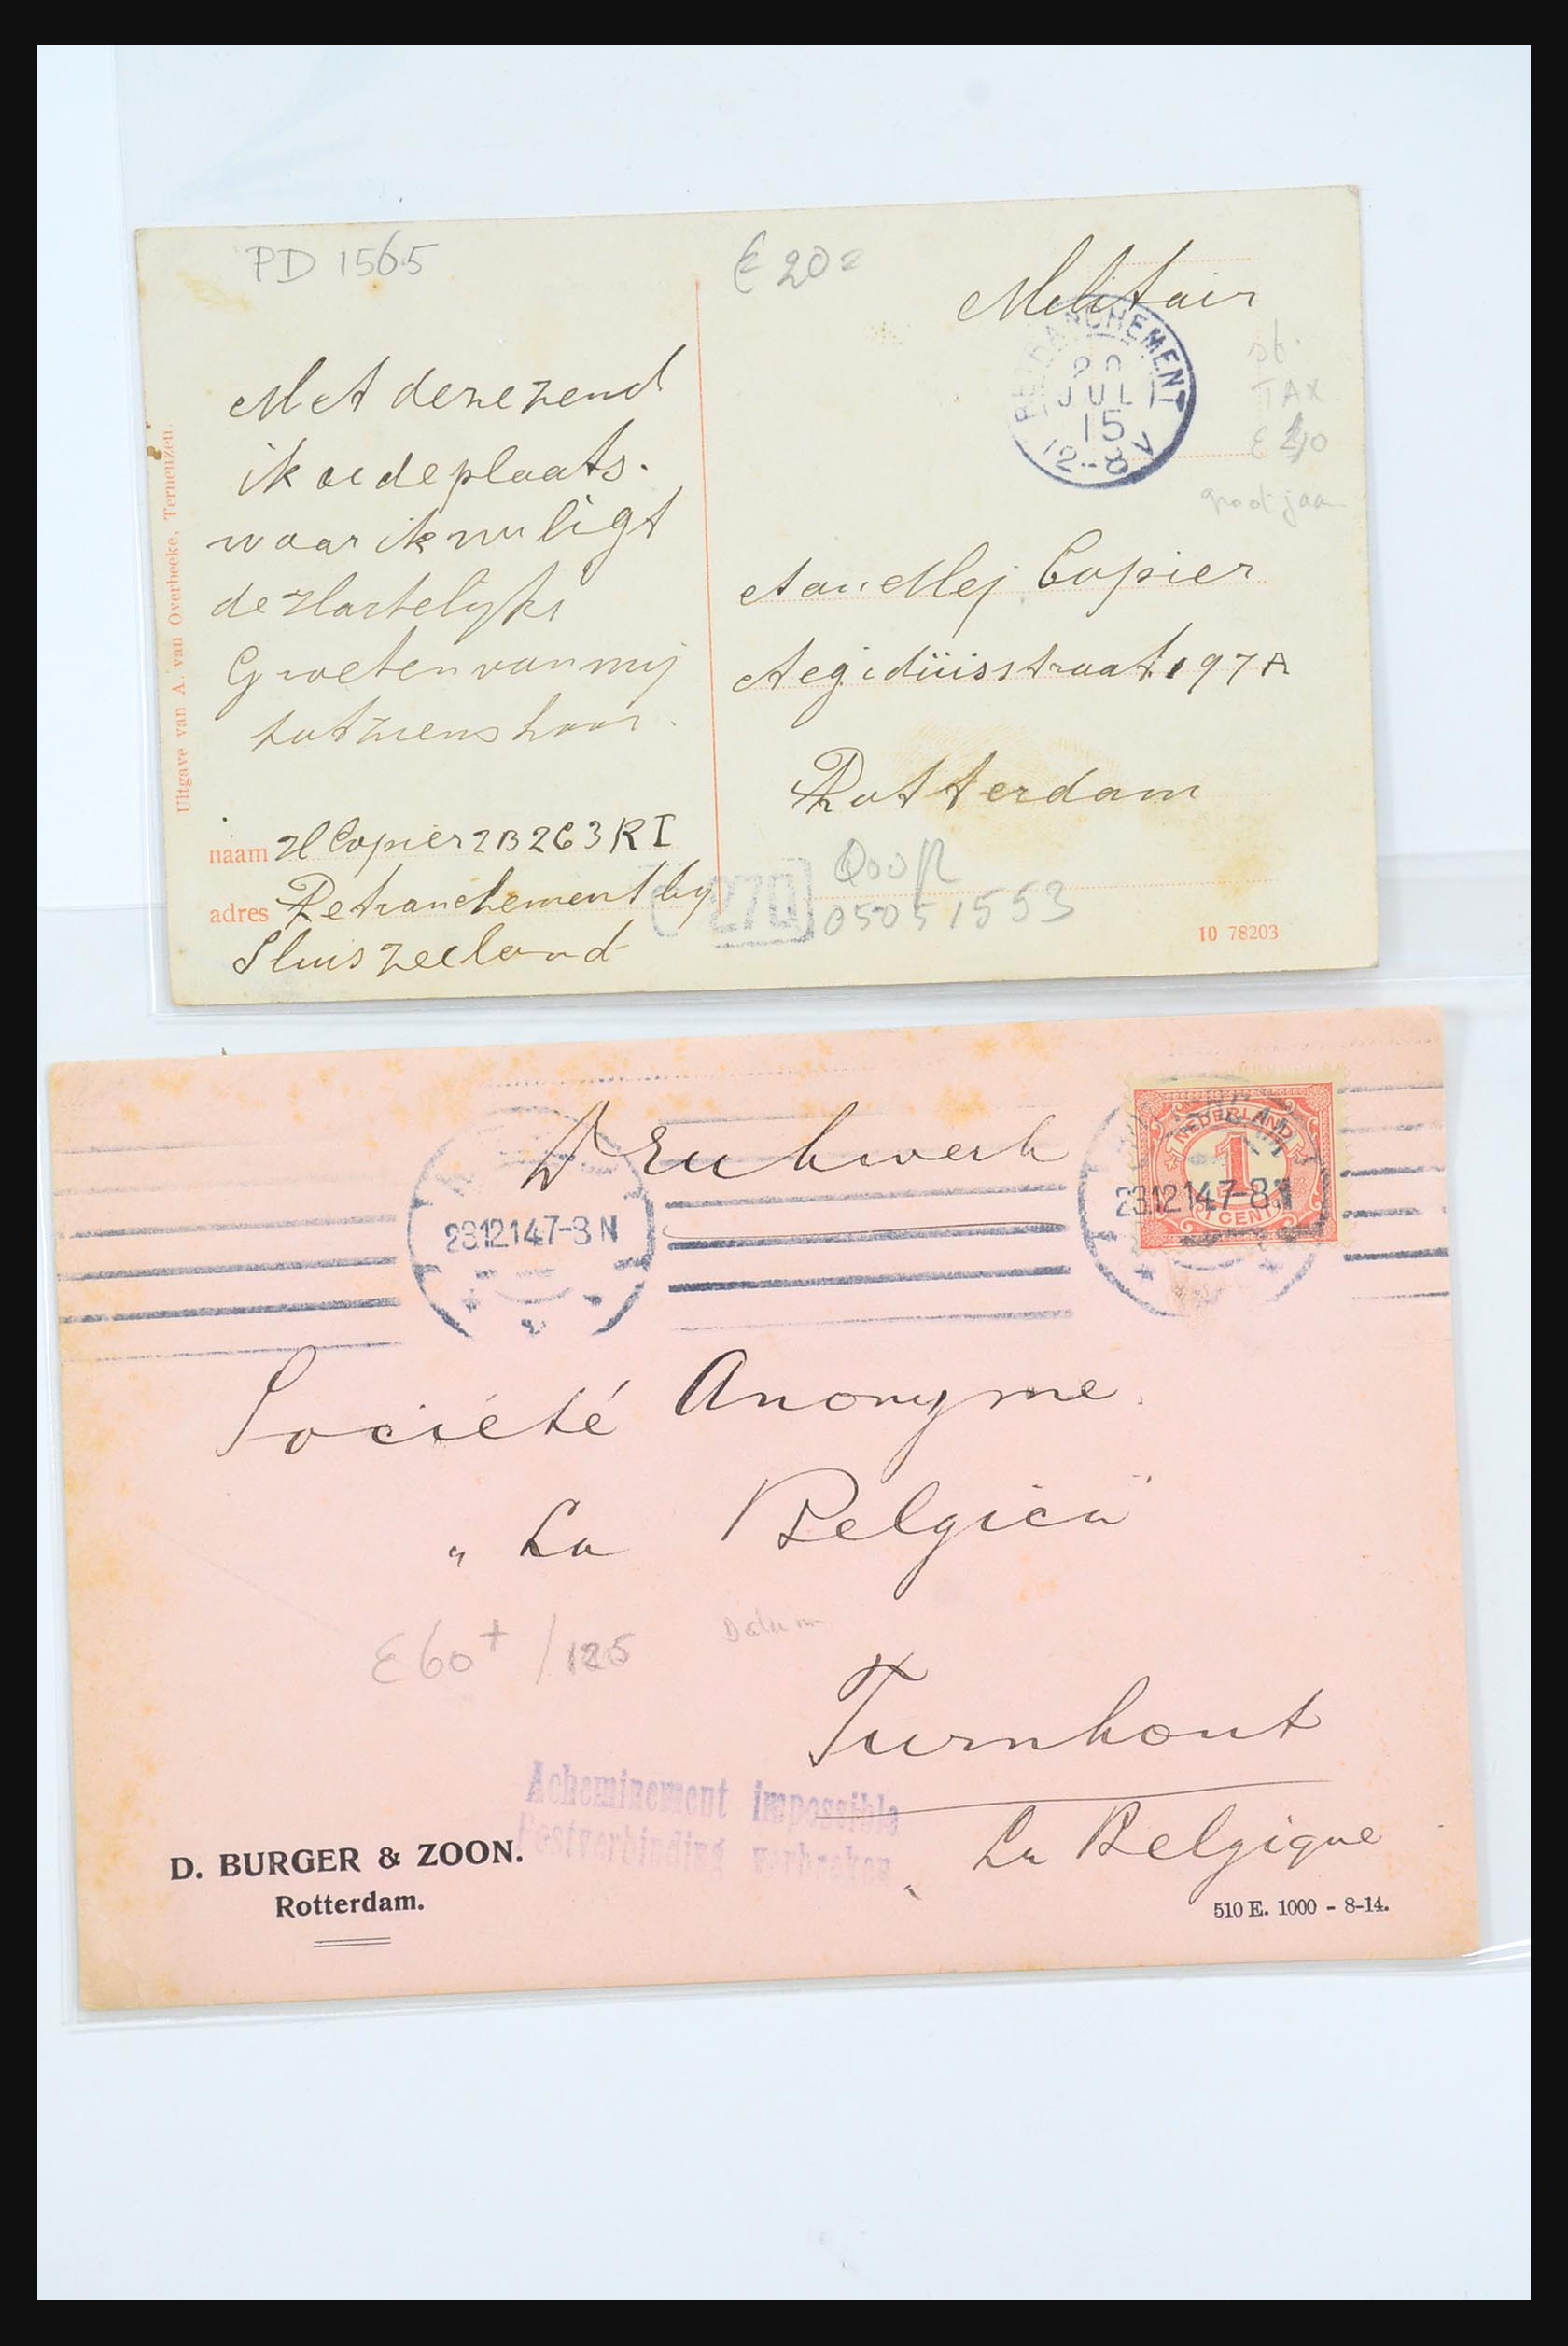 PD 1565
€ 20=
Militair
RETRANCHEMENT
JUL
15
12-8 V
TAX
groot jaar
Met deze zend
ik u de plaats.
waar ik nu ligt
de Hartelyks
Groeten van mij
tot ziens hoor.
Aan Mej Copier
Aegidiüisstraat 97A
Rotterdam
naam H Copier 2B 2C 3 R I
adres Retranchement by
Sluis Zeeland
Uitgave van A. van Overbeeke, Terneuzen.
270
05051553
10 78203
Drukwerk
NEDERLAND
1
1 CENT
23.12.14 7-8 N
23.12.14 7-8 N
Société Anonyme.
„ La Belgica"
€ 60+ / 125
Datum
Turnhout
Acheminement impossible
Postverbinding verbroken
La Belgique
D. BURGER & ZOON.
Rotterdam.
510 E. 1000 - 8-14.